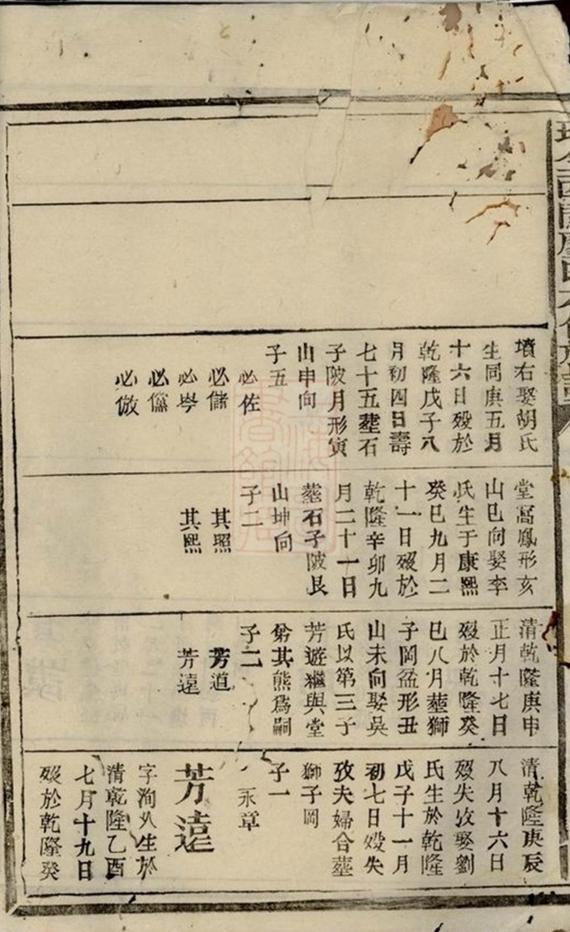 墳右娶胡氏
生同庚五月
十六日歿於
乾隆戊子八
月初四日壽
七十五塟石
子陂月形寅
山申向
子五
必佐
必儲
必岑
必儻
必倣
堂窩鳳形亥
山巳向娶李
氏生于康熙
癸巳九月二
十一日歿於
乾隆辛卯九
月二十一日
塟石子陂艮
山坤向
子二
其照
其熙
清乾隆庚申
正月十七日
歿於乾隆癸
巳八月塟獅
子岡盆形丑
山未向娶吳
氏以第三子
芳遊繼與堂
弟其熊爲嗣
子二
芳道
芳遠
清乾隆庚辰
八月十六日
歿失攷娶劉
氏生於乾隆
戊子十一月
初七日歿失
攷夫婦合塟
獅子岡
子一
永章
芳遠
字洵以生於
清乾隆乙酉
七月十九日
歿於乾隆癸